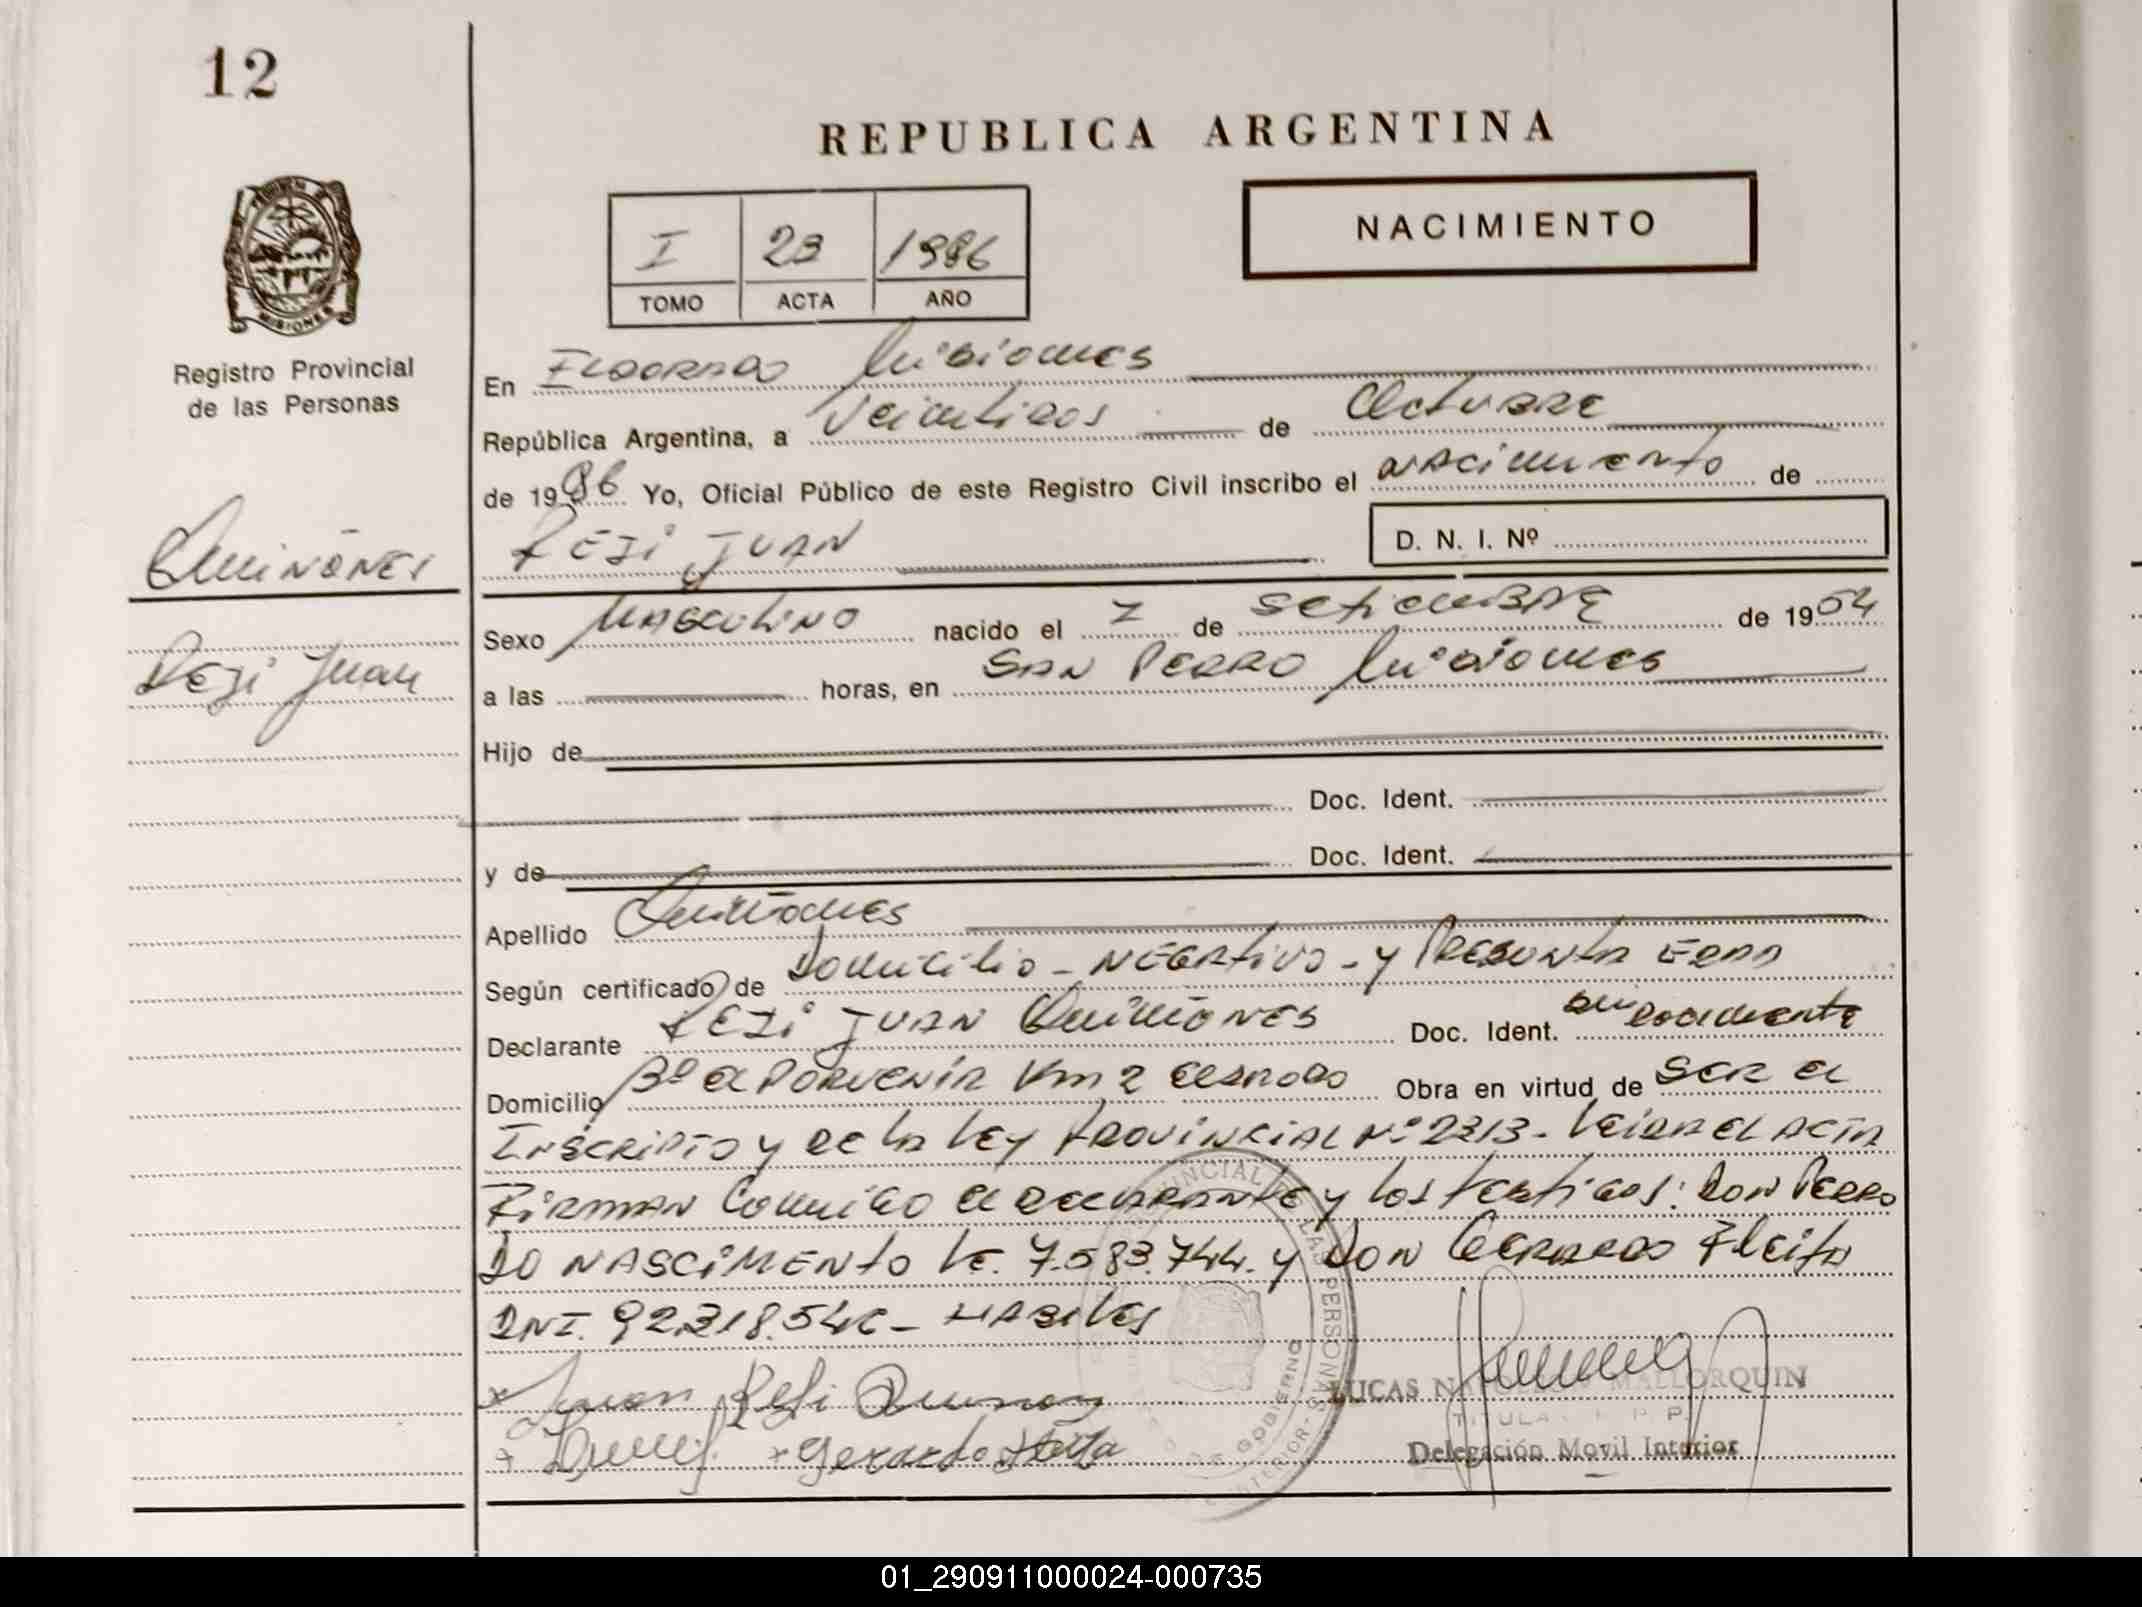 12
REPUBLICA ARGENTINA
NACIMIENTO
I 23 1986
TOMO ACTA AÑO
MISIONES
Registro Provincial
de las Personas
En ELDORADO Misiones
República Argentina, a Veintidos de Octubre
de 1986 Yo, Oficial Público de este Registro Civil inscribo el nacimiento de
REJI JUAN
D. N. I. Nº
Quiñones
Reji Juan
Sexo Masculino nacido el 7 de Setiembre de 1954
a las horas, en SAN PEDRO Misiones
Hijo de
Doc. Ident.
y de Doc. Ident.
Apellido Quiñones
Según certificado de Domicilio - NEGATIVO - y PRESUNTA EDAD
Declarante REJI JUAN Quiñones Doc. Ident. sin documento
Domicilio Bº el PORVENIR Km 2 eldorado Obra en virtud de SER el
INSCRIPTO y de la LEY PROVINCIAL Nº 2313 - Leida el ACTA
FIRMAN Conmigo el declarante y los testigos: DON PEDRO
DO NASCIMENTO LE. 7.583.744. y DON Gerardo Fleita
DNI. 92.318.546 - HABILES
Juan Reji Quiñones
Gerardo Fleita
LUCAS MALLORQUIN
TITULAR R. P. P.
Delegación Movil Interior
01_290911000024-000735